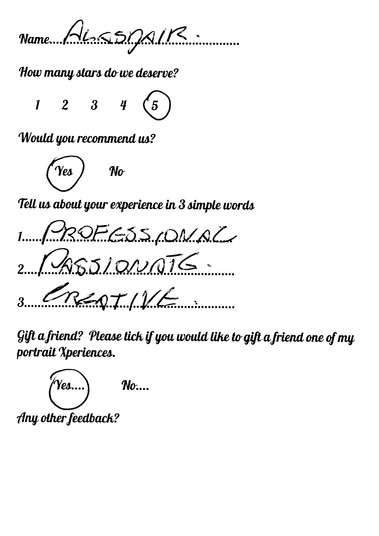 Name....ALASDAIR.
How many stars do we deserve?
1 2 3 4 5
Would you recommend us?
Yes No
Tell us about your experience in 3 simple words
1.....PROFESSIONAL
2.....PASSIONATE.
3.....CREATIVE.
Gift a friend? Please tick if you would like to gift a friend one of my
portrait Xperiences.
Yes.... No....
Any other feedback?